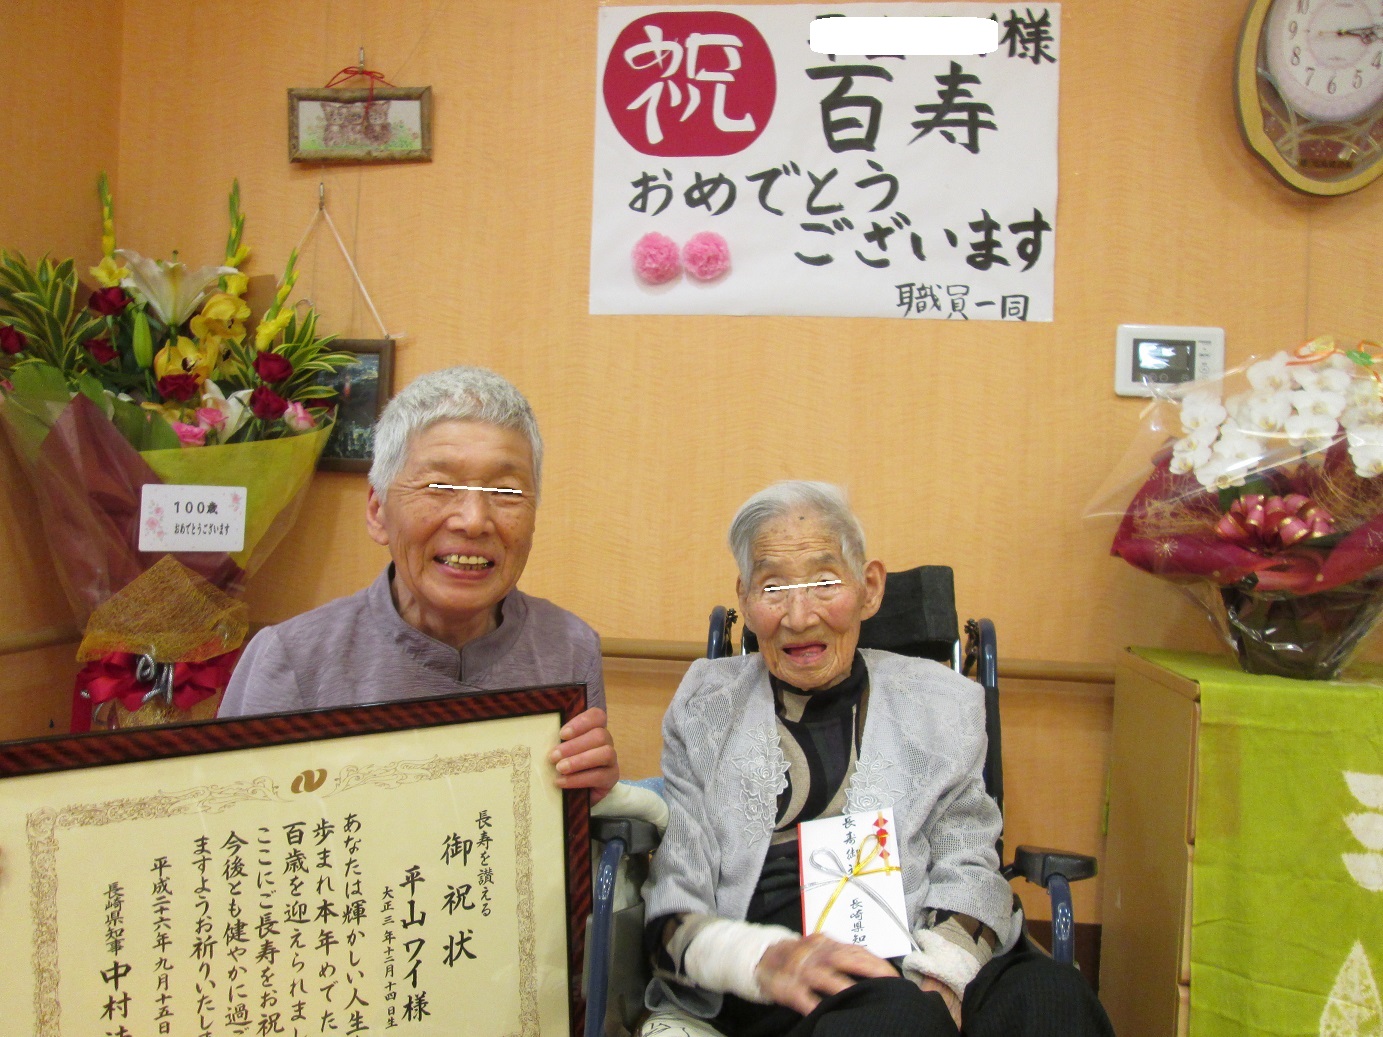 祝
めでたし
様
百寿
おめでとう
ございます
職員一同
100歳
おめでとうございます
長寿を讃える
御祝状
平山ワイ様
大正三年十二月十四日生
あなたは輝かしい人生
歩まれ本年めでた
百歳を迎えられまし
ここにご長寿をお祝
今後とも健やかに過ご
ますようお祈りいたしま
平成二十六年九月十五日
長崎県知事 中村
長寿御
長崎県知
10
9
8
7
6
5
4
3